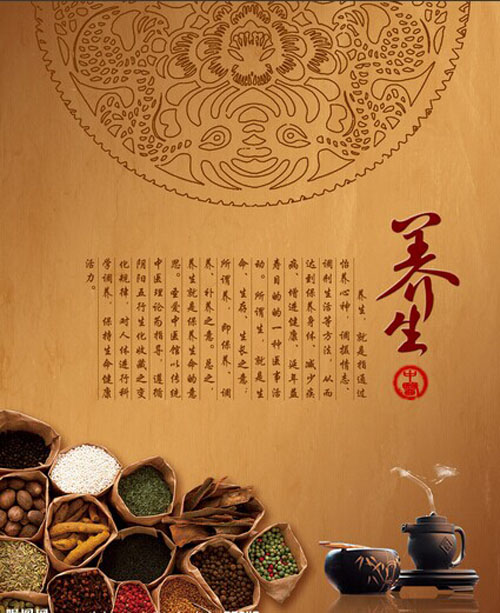 养生
中醫
养生，就是指通过
怡养心神、调摄情志、
调剂生活等方法，从而
达到保养身体、减少疾
病、增进健康、延年益
寿目的的一种医事活
动。所谓生，就是生
命、生存、生长之意；
所谓养，即保养、调
养、补养之意。总之，
养生就是保养生命的意
思。圣爱中医馆以传统
中医理论为指导，遵循
阴阳五行生化收藏之变
化规律，对人体进行科
学调养，保持生命健康
活力。